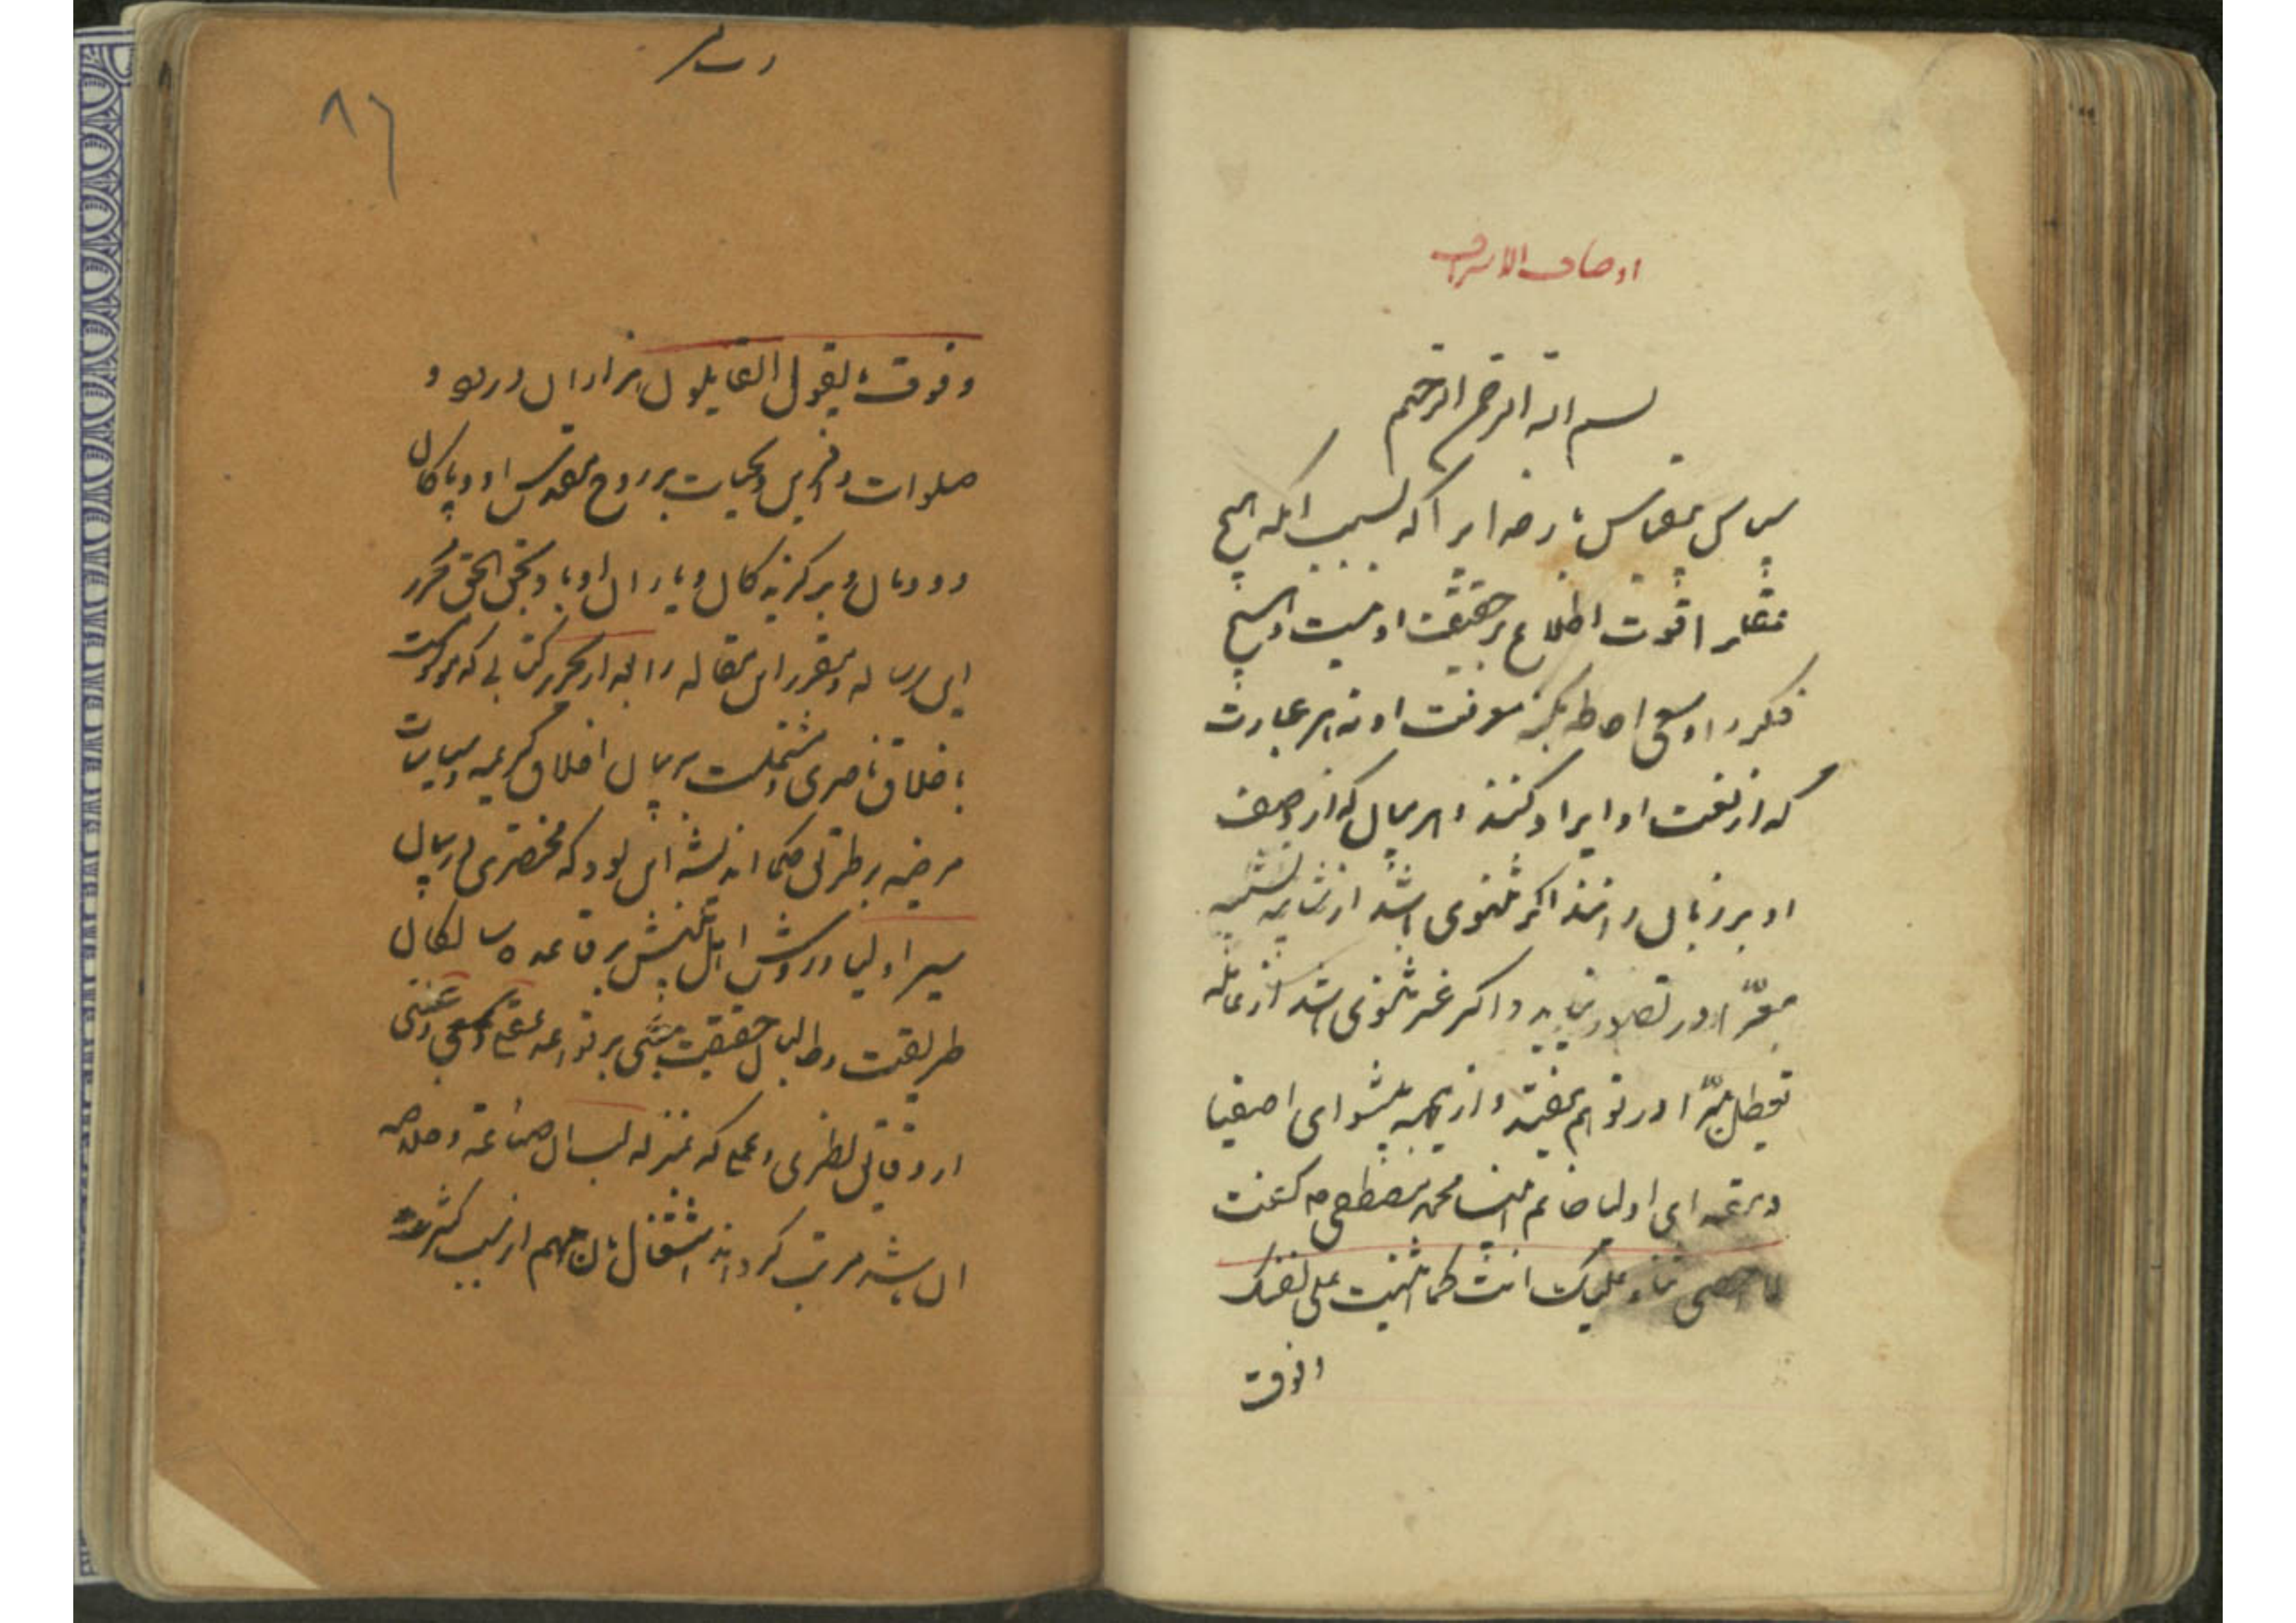 اوصاف الاشراف
بسم الله الرحمن الرحیم
سپاس بیقیاس بار خدایرا که بسبب آنکه هیچ
عقلرا قوت اطلاع بر حقیقت او نیست و هیچ
فکر را وسع احاطه بکنه معرفت او نه هر عبارت
که از نعت او ایراد کنند و هر بیان که از وصف
او بر زبان رانند اگر ثبوتی باشد از شایبه تشبیه
معرّا در تصور نیاید و اگر غیر ثبوتی باشد از غائله
تعطیل مبرّا در توهم نیفتد و ازینجهه پیشوای اصفیا
و مقتدای اولیا خاتم انبیا محمد مصطفی ص گفت
لا احصی ثناء علیک انت کما اثنیت علی نفسک
وفوق
٨٦
وفوق ما یقول القایلون هزاران درود و
صلوات و آفرین و تحیات بر روح مقدس او و پاکان
دودمان و برگزیدگان و یاران او باد بحق الحق محرر
این رساله و مقرر این مقاله را بعد از تحریر کتابی که موسومست
باخلاق ناصری و مشتملست بر بیان اخلاق کریمه و سیاسات
مرضیه بر طریق حکما اندیشه آن بود که مختصری در بیان
سیر اولیا و روش اهل بینش بر قاعده سالکان
طریقت و طالبان حقیقت مبنی بر قواعد عقلی و سمعی و منبی
از دقایق نظری و عملی که بمنزله لب آن صناعة و خلاصه
آن باشد مرتب گرداند اشتغال بآن مهم از سبب کثرت